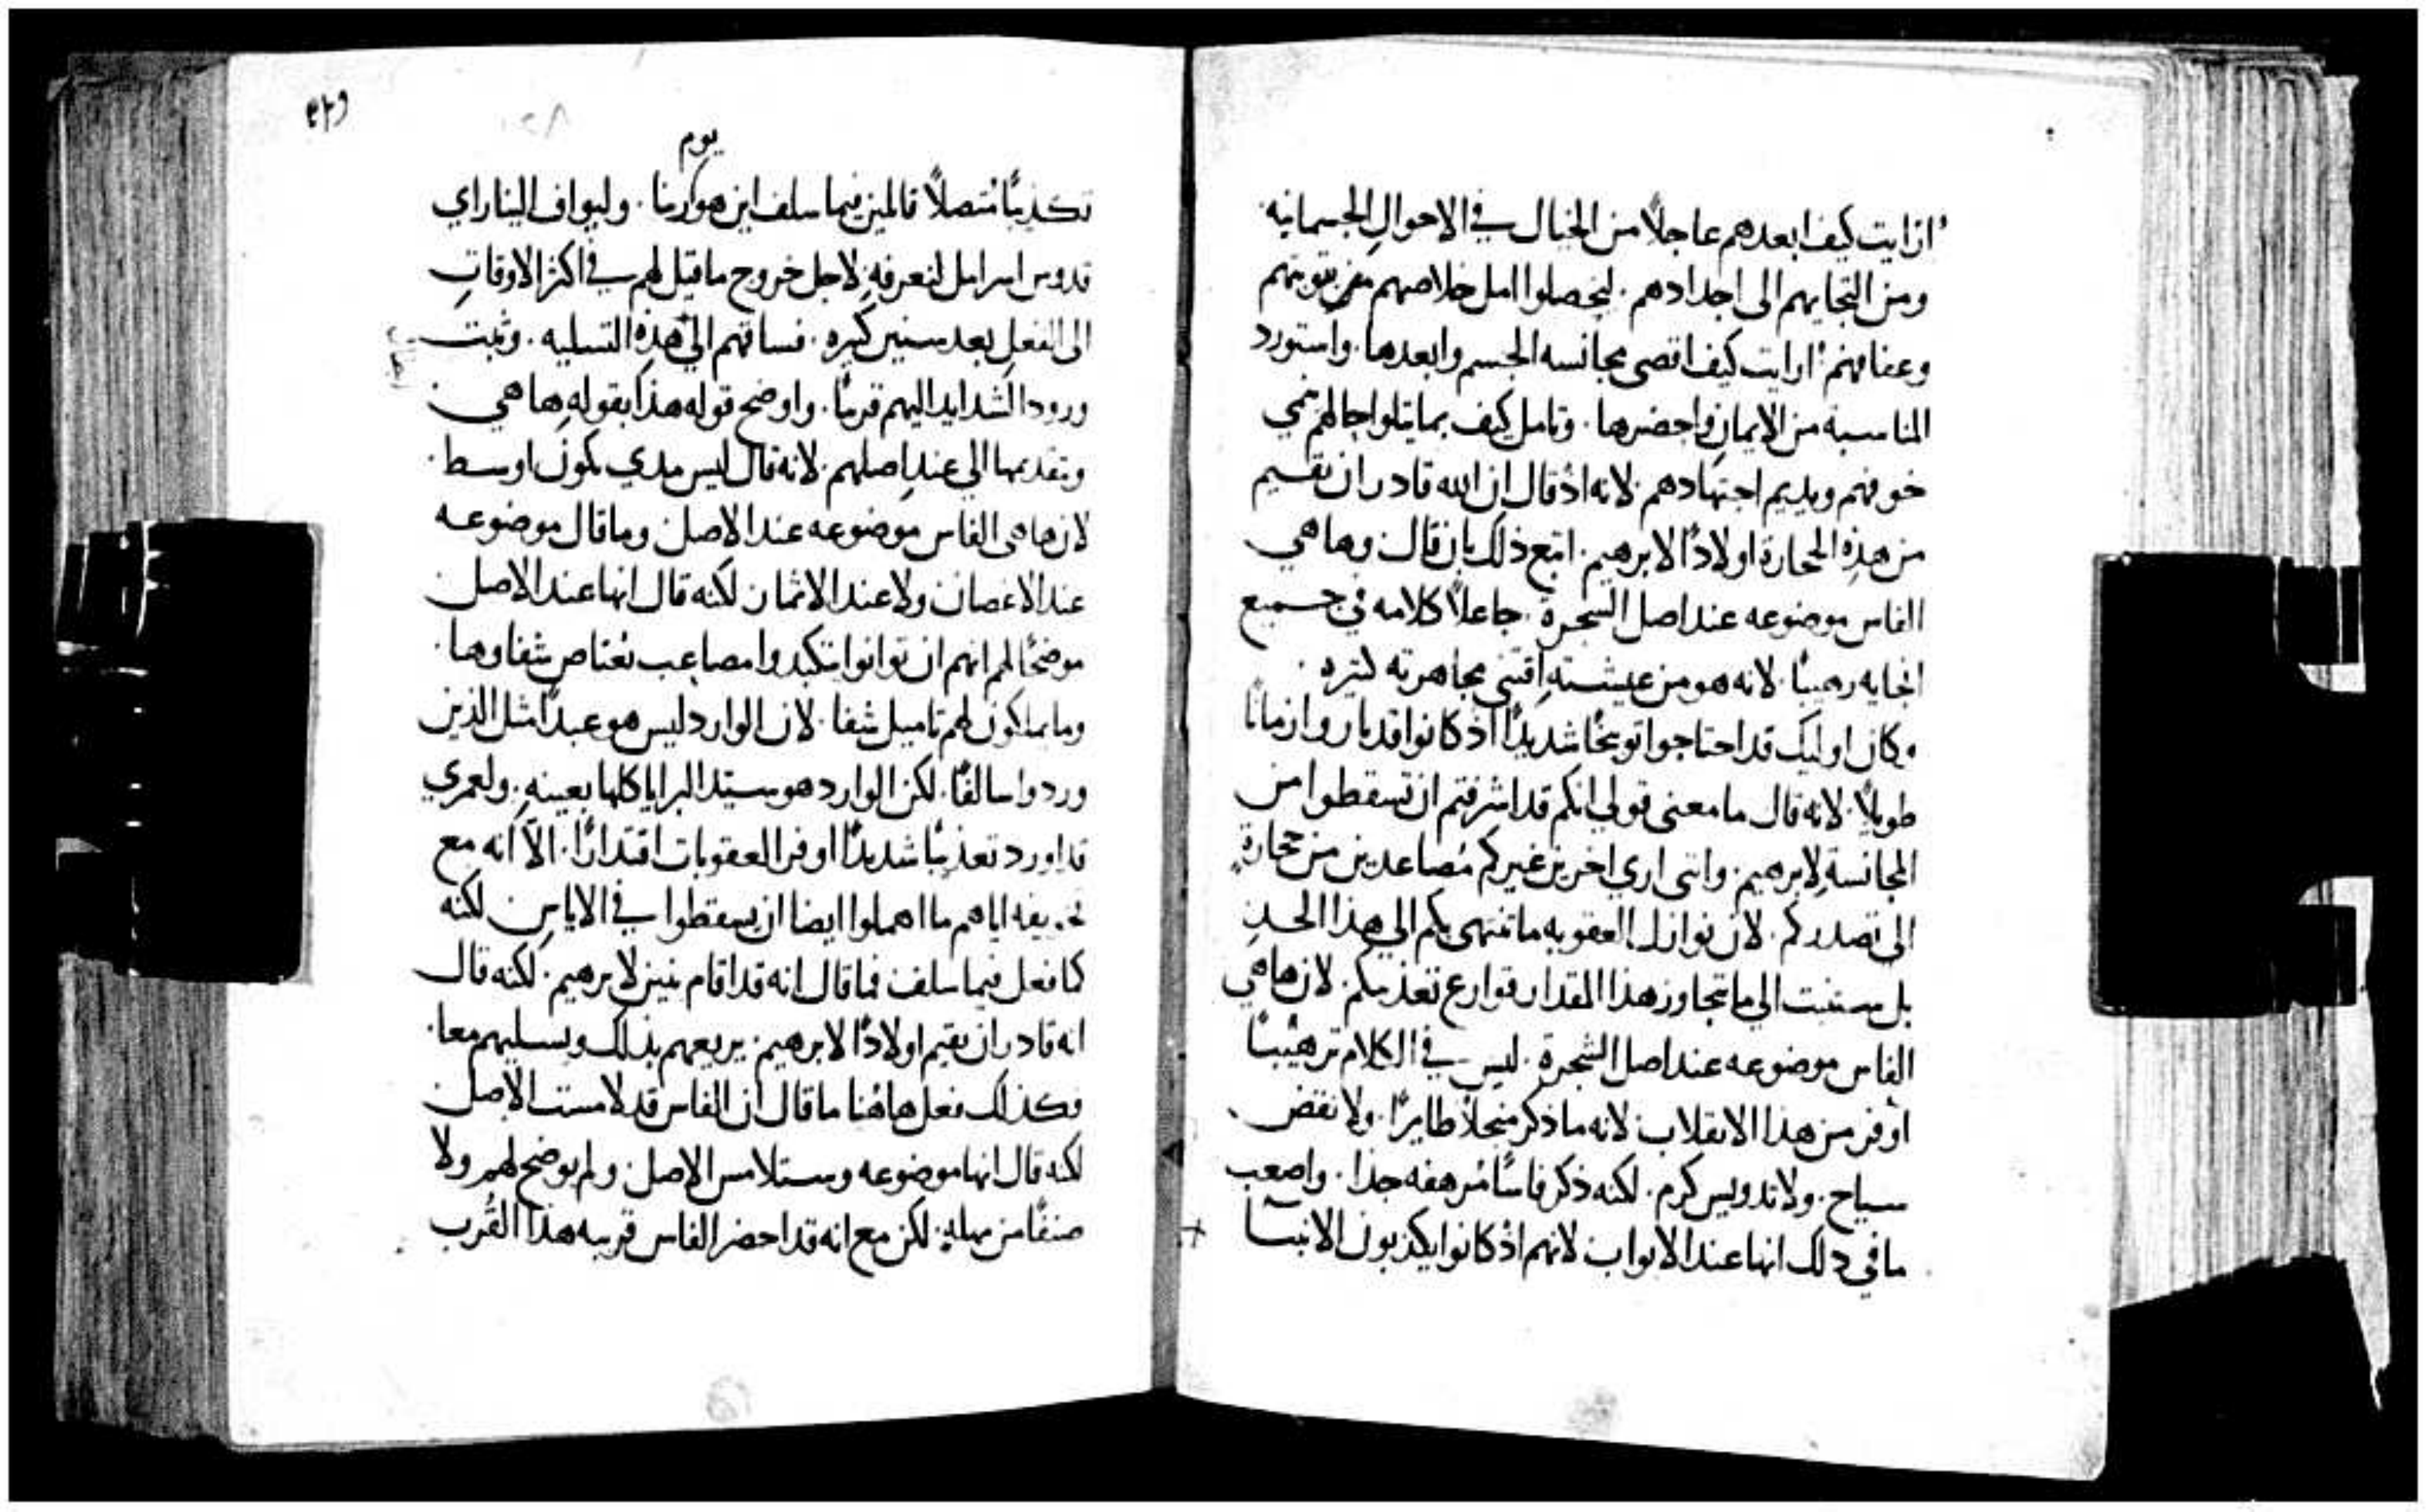 ارايت كيف ابعدهم عاجلاً من الخيال في الاحوالِ الجسمانيه
ومن التجايهم الى اجدادهم. ليحصلوا امل خلاصهم من توبتهم
وعفافهم. ارايت كيف اقصى مجانسه الجسم وابعدها. واستورد
المناسبة من الايمان واحضرها. وتامل كيف بما يتلوا جا لهم ينمي
خوفهم ويديم اجتهادهم. لانه اذ قال ان الله قادر ان يقيم
من هذِه الحجارة اولادًا لابرهيم. اتبع ذلك بان قال وها هي
الفاس موضوعه عند اصل الشجرة. جاعلاً كلامه في جميع
الجايه رهيبًا. لانه هو من عيشتهِ اقتنى مجاهرته كثيره.
وكان اوليك قد احتاجوا توبيخًا شديدًا اذ كانوا قد باروا زمانًا
طويلاً. لانه قال ما معنى قولي انكم قد اشرفتم ان تسقطوا من
المجانسةِ لابرهيم. وانتم اري اخرين غيركم مُصاعدين من حجارةٍ
الى تصدركم. لان نوازل العقوبه ما تنتهى بكم الي هذا الحدِ
بل ستثبت الي ما يتجاوز هذا المقدار قوارع تعذيبكم. لان ها هي
الفاس موضوعه عند اصل الشجرة. ليس في الكلام ترهيبًا
اوفر من هذا الانقلاب لانه ما ذكر منجلاً طايرًا. ولا نقض
سياح. ولا تدويس كرم. لكنه ذكر فاسًا مُرهفه جدا. واصعب
ما في دلك انها عند الابواب لانهم اذ كانوا يكذبون الانبيا
٤٢٩
يوم
تكذيبًا مُتصلاً قالين فيما سلف اين هو ربنا. وليواف الينا راي
قدوس اسرايل لنعرفهِ. لاجل خروج ما قيل لهم في اكثر الاوقاتِ
الى الفعلِ بعد سنين كثيره. فساقهم الي هذِه التسليه. وثبت
ورود الشدايد اليهم قريبًا. واوضح قوله هذا بقولهِ ها هي
وتقديمها الي عندِ اصلهم. لانه قال ليس مدي يكون اوسط.
لان ها هي الفاس موضوعه عند الاصل وما قال موضوعه
عند الاغصان ولا عند الاثمار لكنه قال انها عند الاصل
موضحًا لهم انهم ان توانوا يتكبدوا مصاعب يُعتاص شفاوها.
وما يملكون لهم تاميل شفا. لان الوارد ليس هو عبدًا مثل الذين
وردوا سالفًا. لكن الوارد هو سيّد البرايا كلها بعينهِ. ولعمري
قد اورد تعذيبًا شديدًا اوفر العقوبات اقتدارًا. الاّ انه مع
تخويفه اياهم ما اهملوا ايضا ان يسقطوا في الاياسِ لكنه
كما فعل فيما سلف فما قال انه قد اقام بنين لابرهيم. لكنه قال
انه قادر ان يقيم اولادًا لابرهيم. يريعهم بذلك ويسليهم معا.
فكذلك فعل هاهُنا ما قال ان الفاس قد لامست الاصل
لكنه قال انها موضوعه وستلامس الاصل ولم يوضح لهم ولا
صنفًا من مهلهٍ. لكن مع انه قد احضر الفاس قريبه هذا القُرب